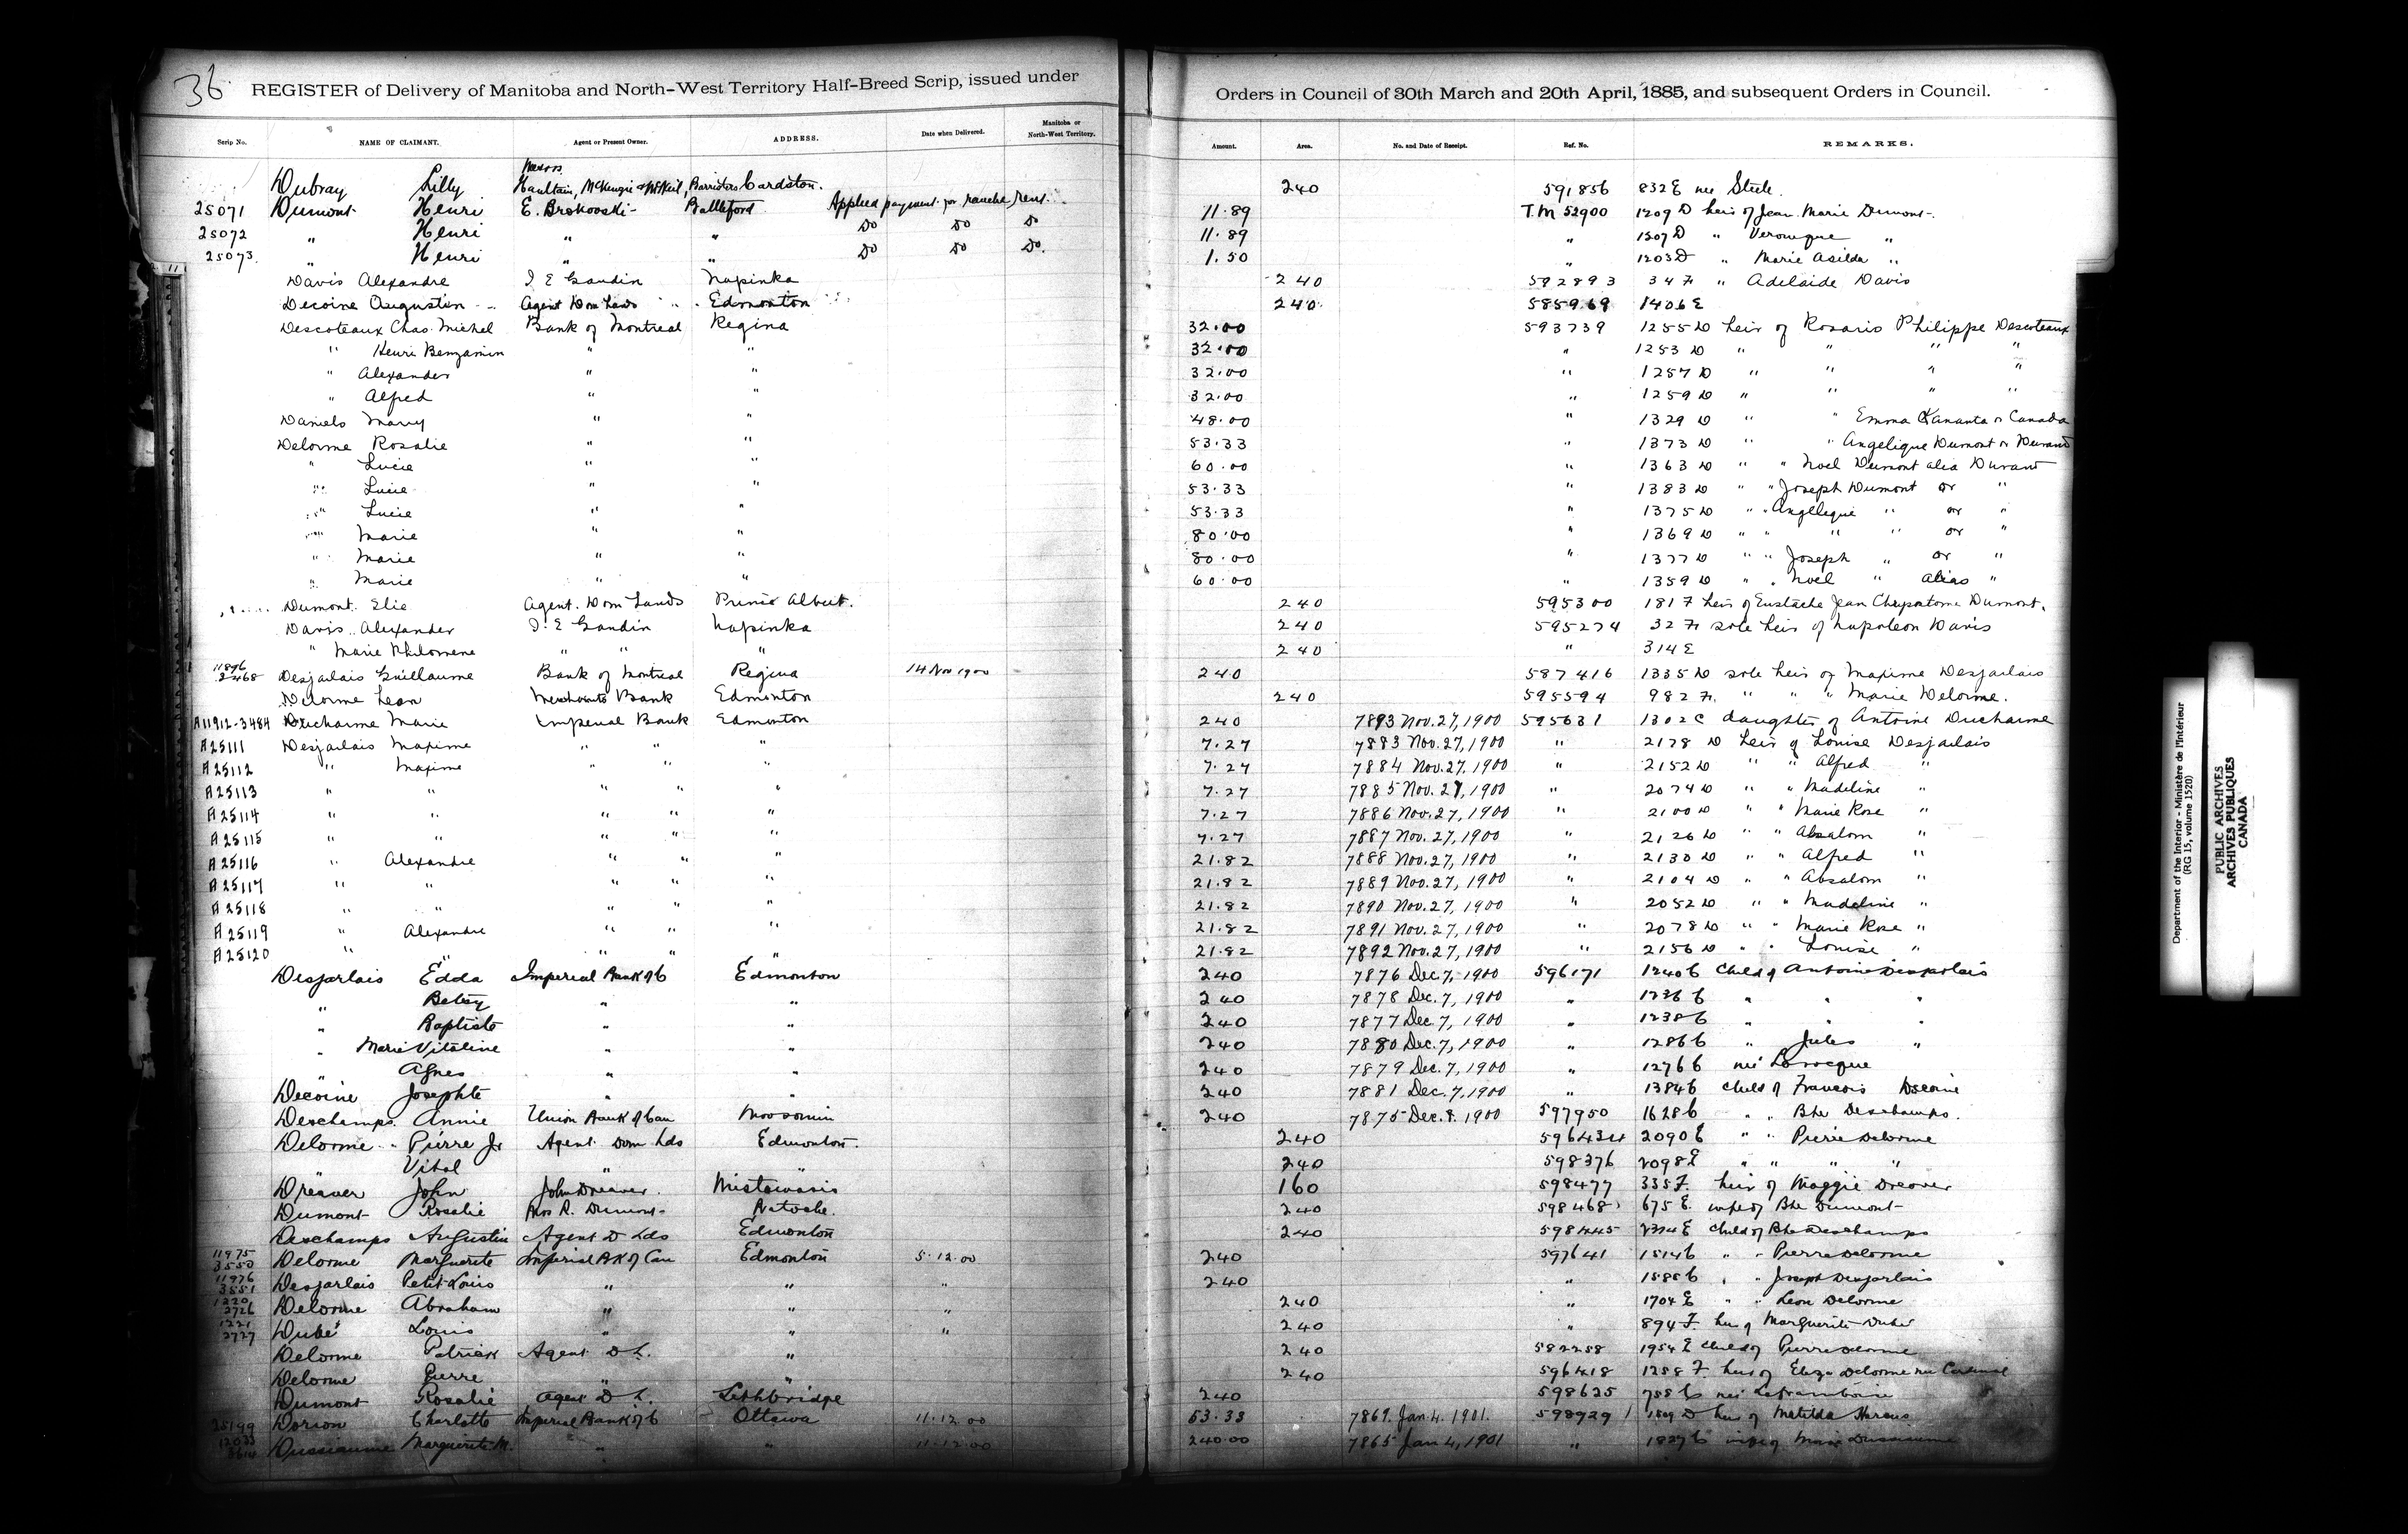 36
REGISTER of Delivery of Manitoba and North-West Territory Half-Breed Scrip, issued under Orders in Council of 30th March and 20th April, 1885, and subsequent Orders in Council.
Scrip No. NAME OF CLAIMANT. Agent or Present Owner. ADDRESS. Date when Delivered. Manitoba or North-West Territory. Amount. Area. No. and Date of Receipt. Ref. No. REMARKS.
Messrs
Dubray Lilly Haultain, McKenzie & McNeil, Barristers Cardston. 240 591856 832 E nee Steele.
25071 Dumont Henri E. Brokovski Battleford Applied payment for ranche rent. 11.89 T.M 52900 1209 D heir of Jean Marie Dumont
25072 " Henri " " Do Do Do 11.89 " 1207 D " Veronique "
25073 " Henri " " Do Do Do. 1.50 " 1203 D " Marie Asilda "
Davis Alexandre J. E Gaudin Napinka 240 592893 34 F " Adelaide Davis
Decoine Augustin Agent Dom Lands Edmonton 240 585969 1406 E
Descoteaux Chas. Michel Bank of Montreal Regina 32.00 593739 1255 D heir of Rosaris Philippe Descoteaux
" Henri Benjamin " " 32.00 " 1253 D " " " "
" Alexander " " 32.00 " 1257 D " " " "
" Alfred " " 32.00 " 1259 D " " " "
Daniels Mary " " 48.00 " 1329 D " " Emma Kananta or Canada
Delorme Rosalie " " 53.33 " 1373 D " " Angelique Dumont or Durand
" Lucie " " 60.00 " 1363 D " " Noel Dumont alia Durant
" Lucie " " 53.33 " 1383 D " " Joseph Dumont or "
" Lucie " " 53.33 " 1375 D " " Angelique " or "
" Marie " " 80.00 " 1369 D " " " " or "
" Marie " " 80.00 " 1377 D " " Joseph " or "
" Marie " " 60.00 " 1359 D " " Noel " Alias "
Dumont Elie Agent. Dom Lands Prince Albert. 240 595300 181 F heir of Eustache Jean Chrysostome Dumont.
Davis Alexander J. E Gaudin Napinka 240 595274 32 F sole heir of Napoleon Davis
" Marie Philomene " " 240 " 314 E
11896 3468 Desjarlais Guillaume Bank of Montreal Regina 14 Nov 1900 240 587416 1335 D sole heir of Maxime Desjarlais
Delorme Leon Merchants Bank Edmonton 240 595594 982 F. " " " Marie Delorme.
A11912-3484 Ducharme Marie Imperial Bank Edmonton 240 7893 Nov. 27, 1900 595631 1302 C daughter of Antoine Ducharme
A25111 Desjarlais Maxime " " " 7.27 7883 Nov. 27, 1900 " 2178 D heir of Louise Desjarlais
A25112 " Maxime " " " 7.27 7884 Nov. 27, 1900 " 2152 D " " Alfred "
A25113 " " " " " 7.27 7885 Nov. 27, 1900 " 2074 D " " Madeline "
A25114 " " " " " 7.27 7886 Nov. 27, 1900 " 2100 D " " Marie Rose "
A25115 " " " " " 7.27 7887 Nov. 27, 1900 " 2126 D " " Absalom "
A25116 " Alexandre " " " 21.82 7888 Nov. 27, 1900 " 2130 D " " Alfred "
A25117 " " " " " 21.82 7889 Nov. 27, 1900 " 2104 D " " Absalom "
A25118 " " " " " 21.82 7890 Nov. 27, 1900 " 2052 D " " Madeline "
A25119 " Alexandre " " " 21.82 7891 Nov. 27, 1900 " 2078 D " " Marie Rose "
A25120 " " " " " 21.82 7892 Nov. 27, 1900 " 2156 D " " Louise "
Desjarlais Edda Imperial Bank of C Edmonton 240 7876 Dec. 7, 1900 596171 1240 C child of Antoine Desjarlais
" Betsy " " 240 7878 Dec. 7, 1900 " 1236 C " " "
" Baptiste " " 240 7877 Dec. 7, 1900 " 1238 C " " "
" Marie Vitaline " " 240 7880 Dec. 7, 1900 " 1286 C " Jules "
" Agnes " " 240 7879 Dec. 7, 1900 " 1276 C nee Larocque
Decoine Josephte " " 240 7881 Dec. 7, 1900 " 1384 C child of Francois Decoine
Deschamps Annie Union Bank of Can Moosomin 240 7875 Dec. 8. 1900 597950 1628 C " " Bte Deschamps.
Delorme Pierre Jr Agent Dom Lds Edmonton 240 596434 2090 E " " Pierre Delorme
" Vital " " 240 598376 2098 E " " " "
Dreaver John John Dreaver. Mistawasis 160 598477 335 F. heir of Maggie Dreaver
Dumont Rosalie Mrs R. Dumont Batoche. 240 598468 675 E. wife of Bte Dumont
Deschamps Augustin Agent D Lds Edmonton 240 598445 E child of Bte Deschamps
11975 3550 Delorme Marguerite Imperial Bk of Can Edmonton 5.12.00 240 597641 1514 C " " Pierre Delorme
11976 3551 Desjarlais Petit-Louis " " " 240 " 1585 C " " Joseph Desjarlais
1220 2726 Delorme Abraham " " " 240 " 1704 E " " Leon Delorme
1221 2727 Dubé Louis " " " 240 " 894 F. heir of Marguerite Dubé
Delorme Patrick Agent D L. " 240 582258 1954 E child of Pierre Delorme
Delorme Pierre " " 240 596418 1258 F. heir of Eliza Delorme nee Cardinal
Dumont Rosalie Agent D L. Lethbridge 240 598625 755 C nee Laframboise
25199 Dorion Charlotte Imperial Bank of C Ottawa 11.12.00 53.33 7869. Jan. 4. 1901. 598929 D heir of Matilda
12033 Marguerite M. " " 11.12.00 240.00 7865 Jan 4, 1901 " 1827 C wife of
Department of the Interior - Ministère de l'Intérieur
(RG 15, volume 1520)
PUBLIC ARCHIVES
ARCHIVES PUBLIQUES
CANADA